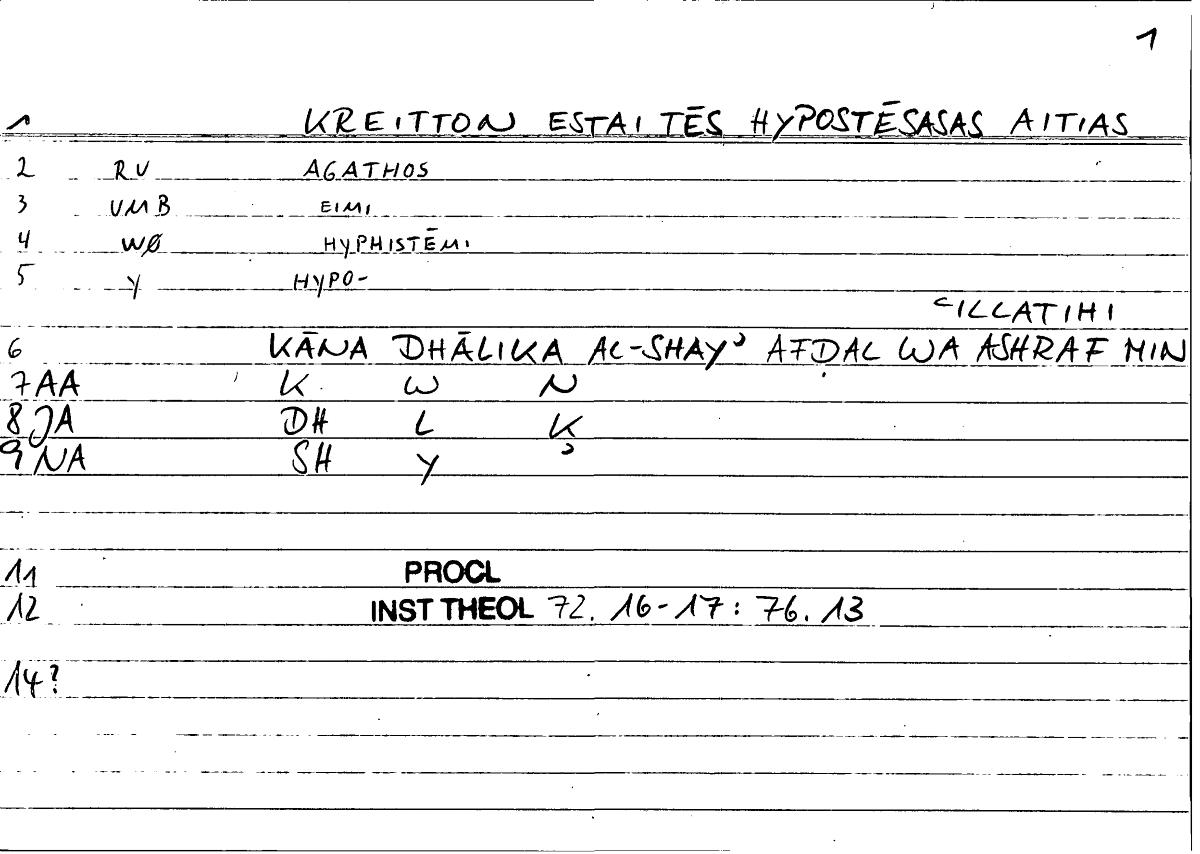 1
1 KREITTON ESTAI TĒS HYPOSTĒSASAS AITIAS
2 RU AGATHOS
3 UMB EIMI
4 WØ HYPHISTĒMI
5 Y HYPO-
ʿILLATIHI
6 KĀNA DHĀLIKA AL-SHAYʾ AFḌAL WA ASHRAF MIN
7 AA K W N
8 JA DH L K
9 NA SH Y ʾ
11 PROCL
12 INST THEOL 72. 16-17: 76. 13
14?